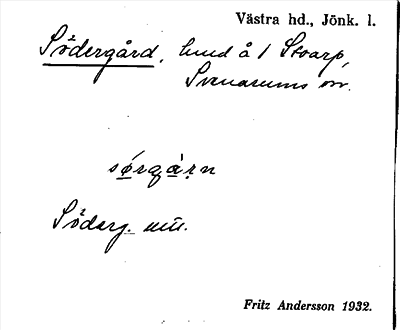 Västra hd., Jönk. l.
Södergård, hmd å 1 Stoarp,
Svenarums sn.
sǿrgàrn
Söderg. utt.
Fritz Andersson 1932.